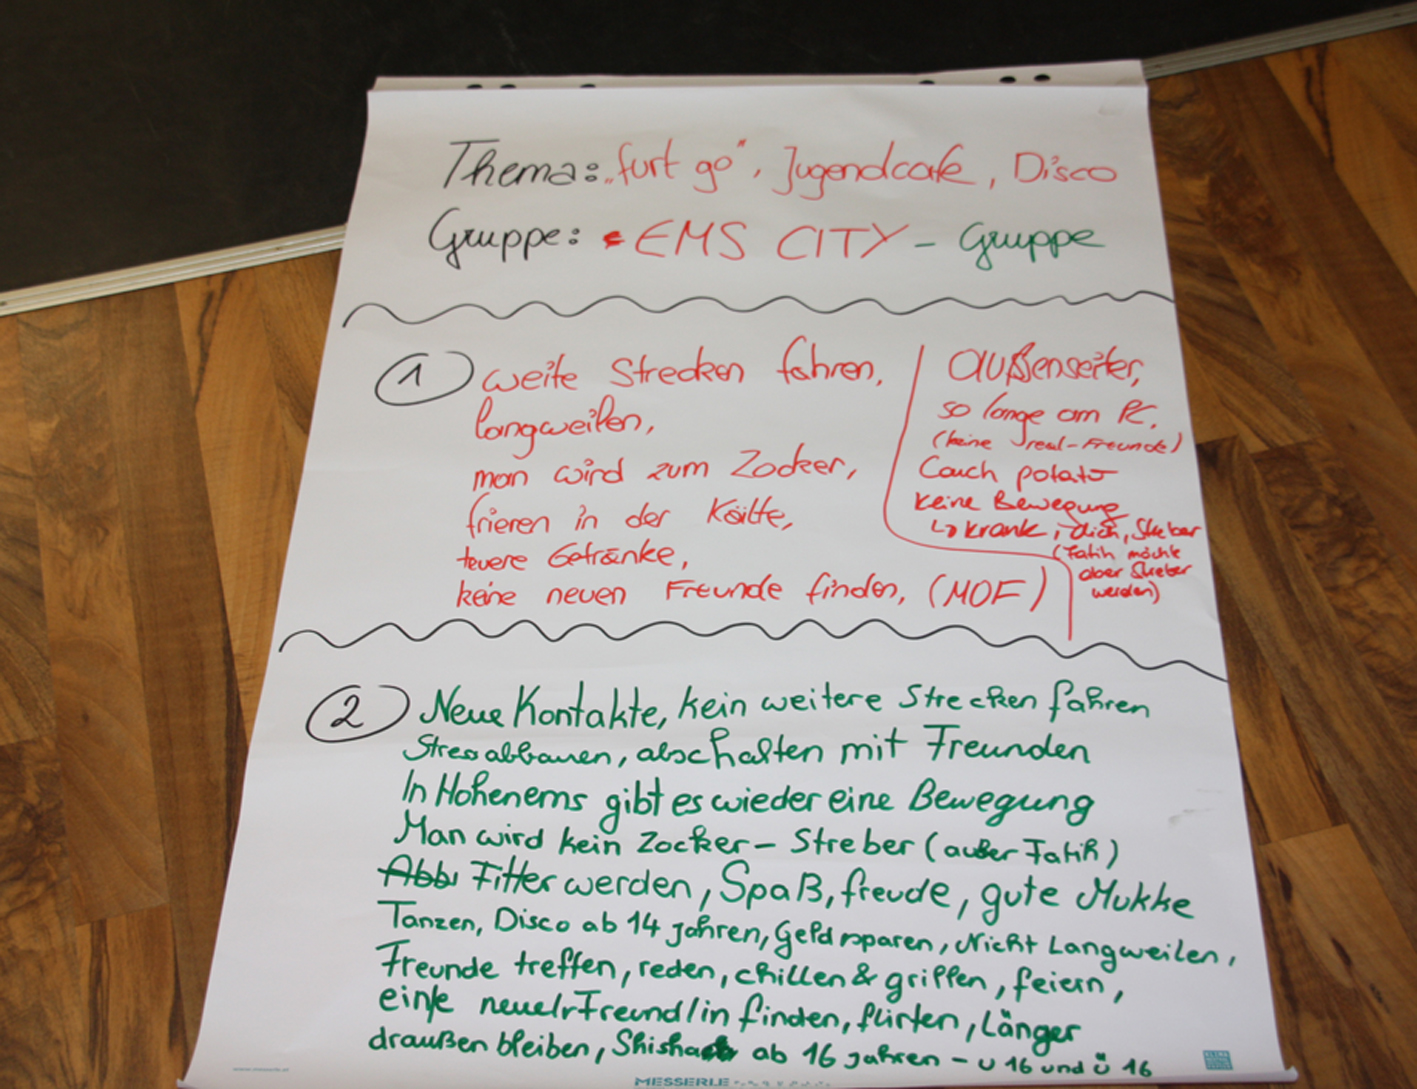 Thema: „furt go", Jugendcafe, Disco
Gruppe: EMS CITY - Gruppe
1 weite Strecken fahren,
langweilen,
man wird zum Zocker,
frieren in der Kälte,
teuere Getränke,
keine neuen Freunde finden, (MOF)
außenseiter,
so lange am PC,
(keine real-Freunde)
Couch potato
keine Bewegung
↳ krank, dich, Streber
(Fatih möchte
aber Streber
werden)
2 Neue Kontakte, kein weitere Strecken fahren
Stress abbauen, abschalten mit Freunden
In Hohenems gibt es wieder eine Bewegung
Man wird kein Zocker - Streber (außer Fatih)
Fitter werden, Spaß, freude, gute Mukke
Tanzen, Disco ab 14 Jahren, Geld sparen, Nicht Langweilen,
Freunde treffen, reden, chillen & grillen, feiern,
ein/e neue/r Freund/in finden, flirten, Länger
draußen bleiben, Shisha ab 16 Jahren - u 16 und ü 16
www.messerle.at
MESSERLE